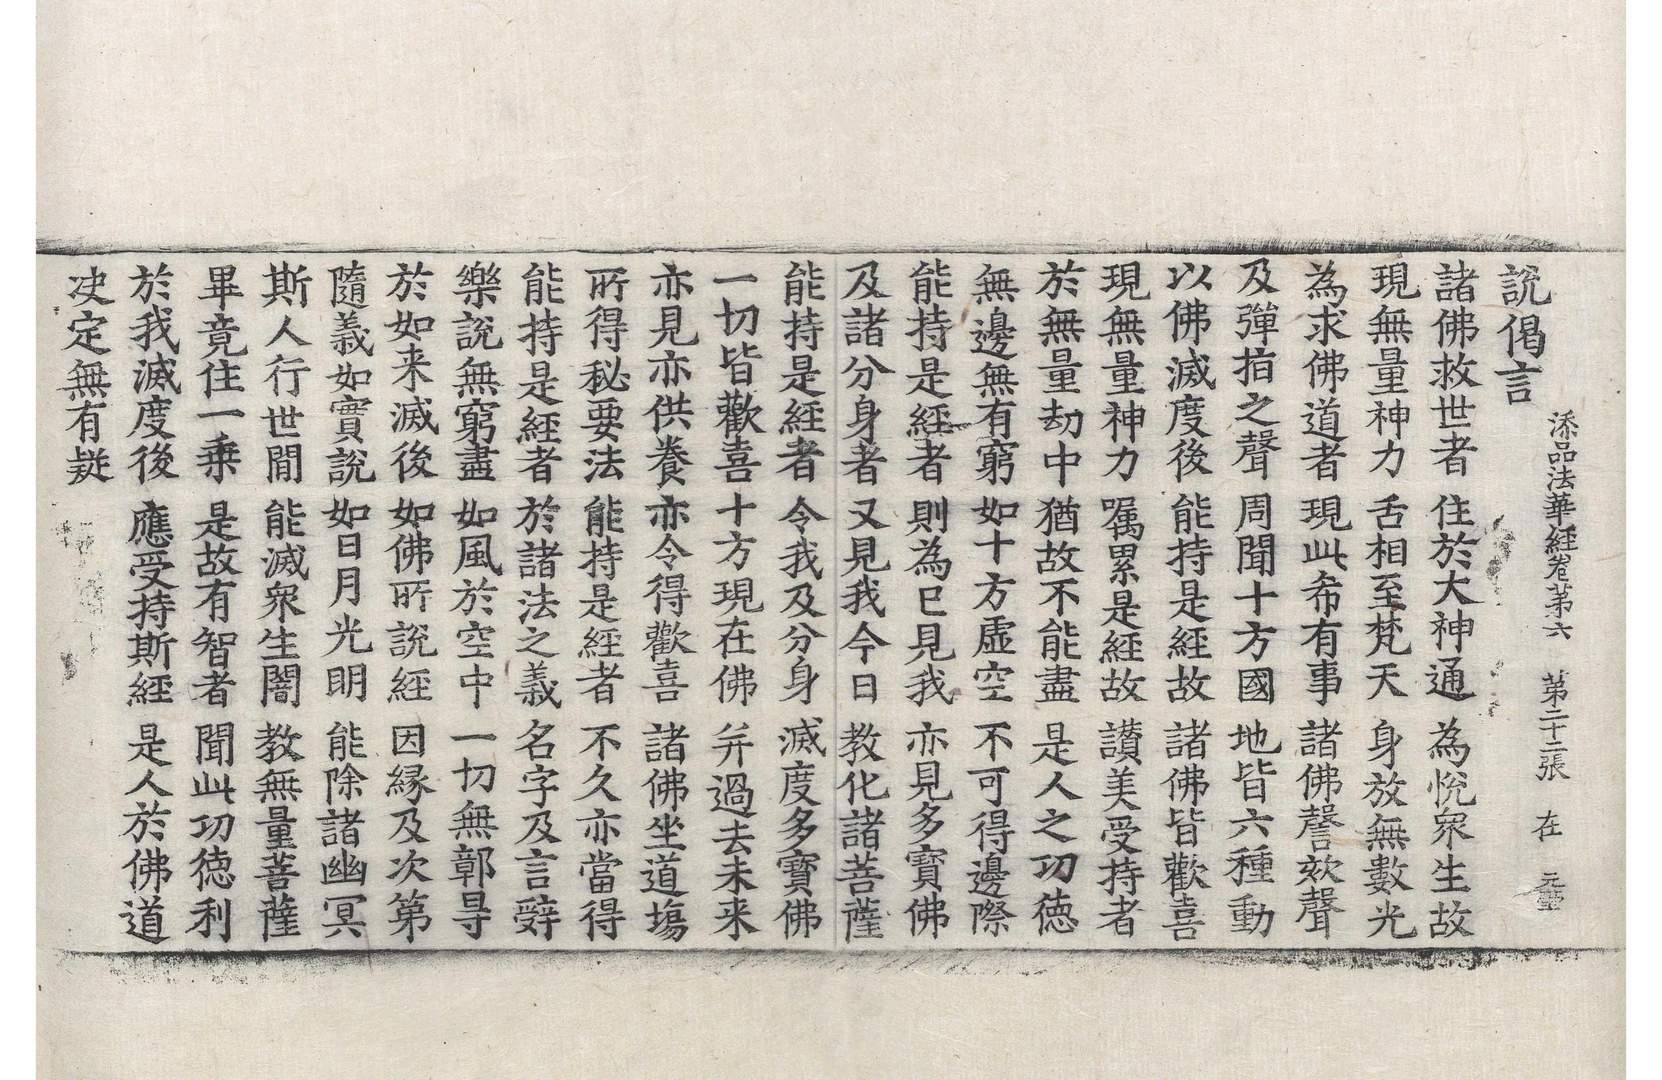 添品法華經卷第六　第二十二張　在　元奎
說偈言
諸佛救世者　住於大神通　為悅眾生故
現無量神力　舌相至梵天　身放無數光
為求佛道者　現此希有事　諸佛謦欬聲
及彈指之聲　周聞十方國　地皆六種動
以佛滅度後　能持是經故　諸佛皆歡喜
現無量神力　囑累是經故　讃美受持者
於無量劫中　猶故不能盡　是人之功德
無邊無有窮　如十方虛空　不可得邊際
能持是經者　則為已見我　亦見多寶佛
及諸分身者　又見我今日　教化諸菩薩
能持是經者　令我及分身　滅度多寶佛
一切皆歡喜　十方現在佛　并過去未来
亦見亦供養　亦令得歡喜　諸佛坐道場
所得秘要法　能持是經者　不久亦當得
能持是經者　於諸法之義　名字及言辝
樂說無窮盡　如風於空中　一切無鄣㝵
於如来滅後　如佛所說經　因緣及次第
隨義如實說　如日月光明　能除諸幽冥
斯人行世間　能滅眾生闇　教無量菩薩
畢竟住一乗　是故有智者　聞此功德利
於我滅度後　應受持斯經　是人於佛道
决定無有疑